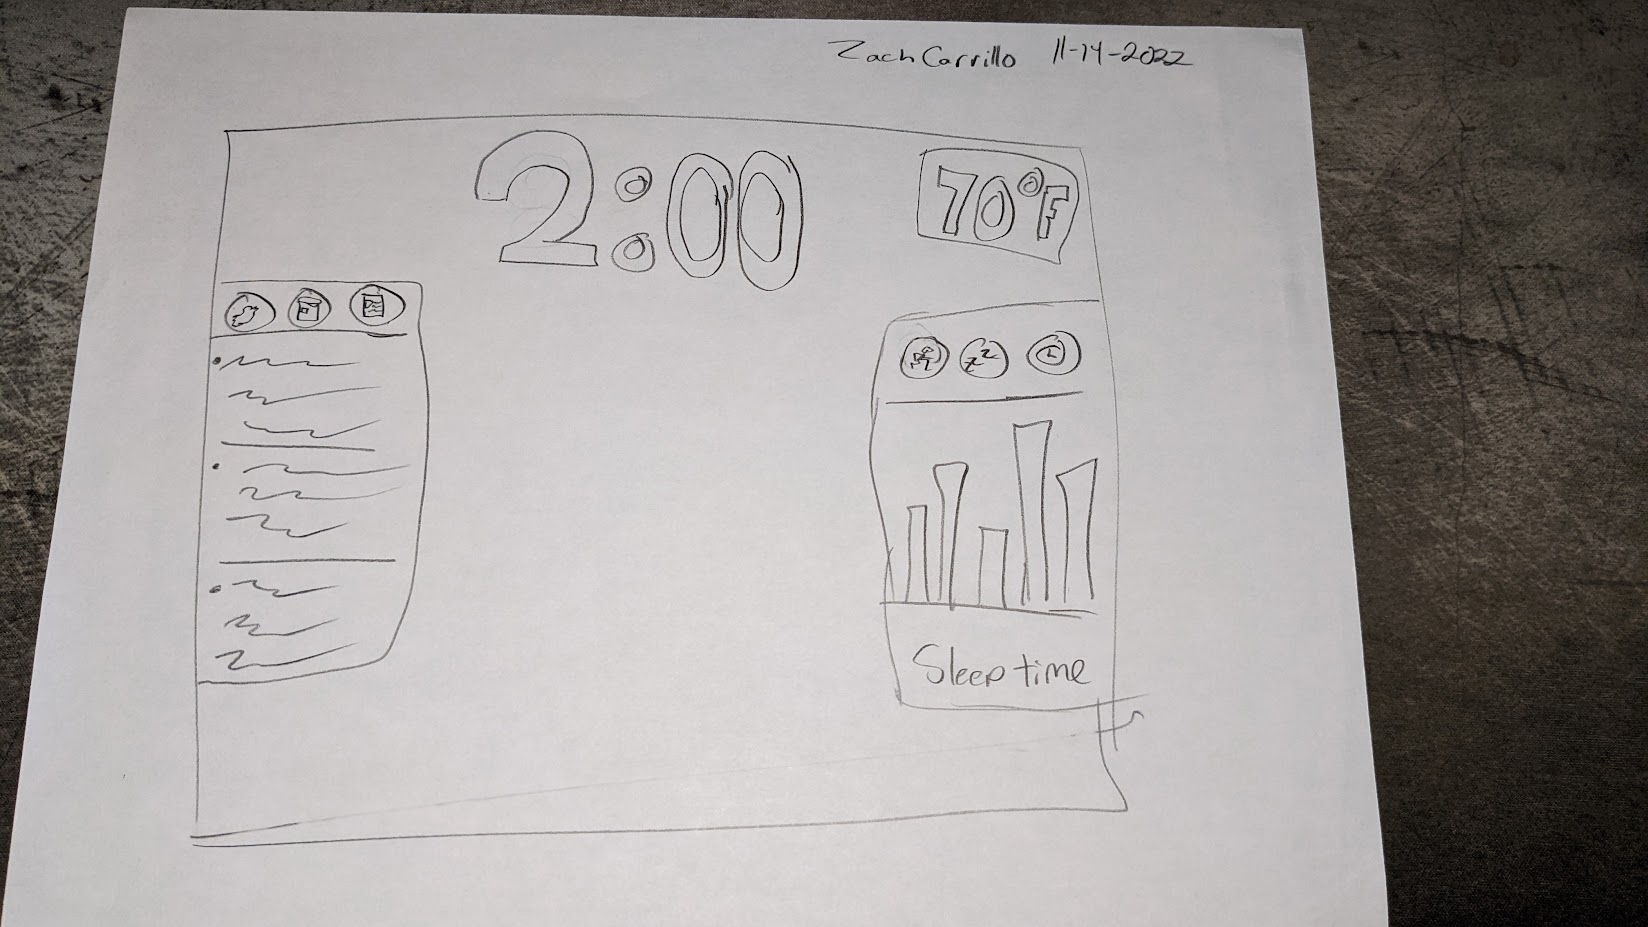 Zach Carrillo 11-14-2022
2:00
70°F
zz
Sleep time